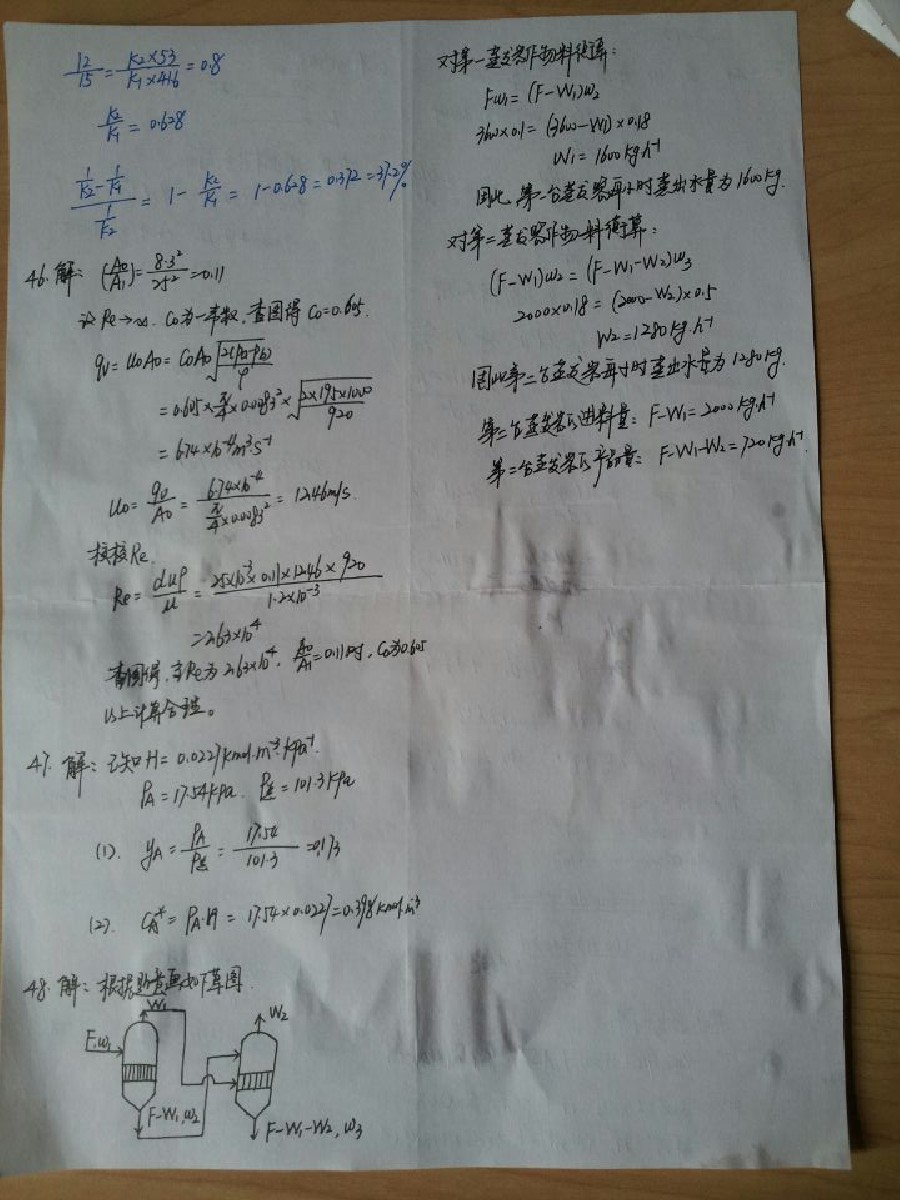 12/15 = K2×53/K1×41.6 = 0.8
K2/K1 = 0.628
(1/K2 - 1/K1)/(1/K2) = 1 - K2/K1 = 1-0.628 = 0.372 = 37.2%
46. 解: (A0/A1) = 8.3²/25² = 0.11
设Re→∞. C0为一常数, 查图得 C0=0.605.
qv = u0A0 = C0A0√(2(Pa-Pb)/ρ)
= 0.605×π/4×0.0083²×√(2×195×1000/920)
= 6.74×10⁻⁴m³·s⁻¹
u0 = qv/A0 = 6.74×10⁻⁴/(π/4×0.0083²) = 12.46m/s.
校核Re.
Re = duρ/μ = 25×10⁻³×0.11×12.46×920/1.2×10⁻³
= 2.63×10⁴
查图得, 当Re为2.63×10⁴, A0/A1=0.11时, C0为0.605
以上计算合理。
47. 解: 已知H = 0.0227kmol·m⁻³·kPa⁻¹.
PA = 17.54kPa. P总 = 101.3kPa
(1). yA = PA/P总 = 17.54/101.3 = 0.173
(2). CA* = PA·H = 17.54×0.0227 = 0.398kmol·m⁻³
48. 解: 根据题意画如下草图.
W1
W2
F,w1
F-W1,w2
F-W1-W2, w3
对第一蒸发器作物料衡算:
Fw1 = (F-W1)w2
3600×0.1 = (3600-W1)×0.18
W1 = 1600kg·h⁻¹
因此, 第一台蒸发器每小时蒸出水量为1600kg.
对第二蒸发器作物料衡算:
(F-W1)w2 = (F-W1-W2)w3
2000×0.18 = (2000-W2)×0.5
W2 = 1280kg·h⁻¹
因此第二台蒸发器每小时蒸出水量为1280kg.
第二台蒸发器的进料量: F-W1 = 2000kg·h⁻¹
第二台蒸发器的产品量: F-W1-W2 = 720kg·h⁻¹